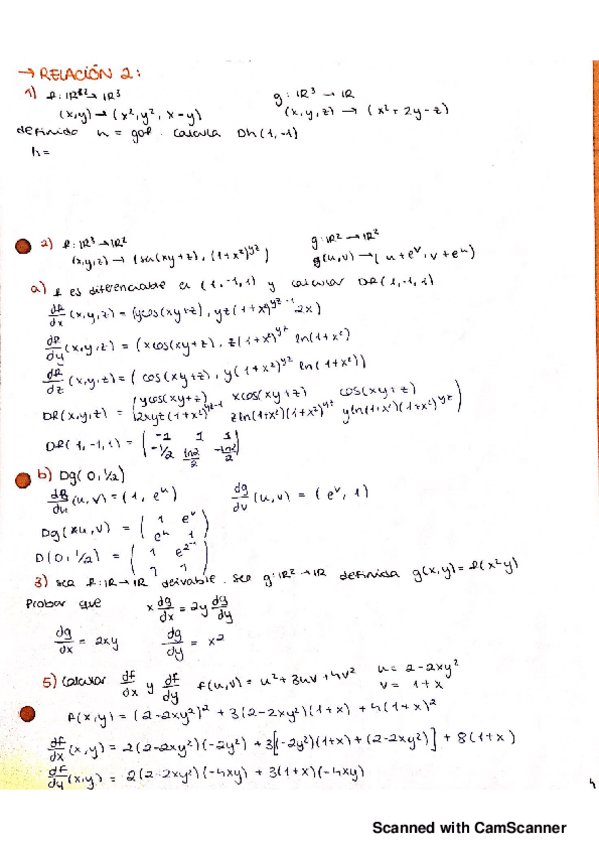 → RELACIÓN 2:
1) f: IR² → IR³    g: IR³ → IR
(x,y) → (x², y², x-y)    (x,y,z) → (x²+2y-z)
definido h = gof. calcula Dh(1,-1)
h=
2) f: IR³ → IR²    g: IR² → IR²
(x,y,z) → (sen(xy+z), (1+x²)^yz)    g(u,v) → (u+e^v, v+e^u)
a) f es diferenciable en (1,-1,1) y calcular Df(1,-1,1)
df/dx (x,y,z) = (ycos(xy+z), yz(1+x²)^yz-1 2x)
df/dy (x,y,z) = (xcos(xy+z), z(1+x²)^yz ln(1+x²)
df/dz (x,y,z) = ( cos(xy+z), y(1+x²)^yz ln(1+x²))
Df(x,y,z) = ( ycos(xy+z)  xcos(xy+z)  cos(xy+z)
2xyz(1+x²)^yz-1  zln(1+x²)(1+x²)^yz  yln(1+x²)(1+x²)^yz )
Df(1,-1,1) = ( -1  1  1
-1/2  ln2/2  -ln2/2 )
b) Dg(0,1/2)
dg/du (u,v) = (1, e^u)    dg/dv (u,v) = (e^v, 1)
Dg(u,v) = ( 1  e^v
e^u  1 )
D(0,1/2) = ( 1  e^2^-1
1  1 )
3) sea f: IR → IR derivable. sea g: IR² → IR definida g(x,y) = f(x²y)
Probar que    x dg/dx = 2y dg/dy
dg/dx = 2xy    dg/dy = x²
5) Calcular df/dx y df/dy  f(u,v) = u²+3uv+4v²  u = 2-2xy²
v = 1+x
f(x,y) = (2-2xy²)² + 3(2-2xy²)(1+x) + 4(1+x)²
df/dx (x,y) = 2(2-2xy²)(-2y²) + 3[(-2y²)(1+x)+(2-2xy²)] + 8(1+x)
df/dy (x,y) = 2(2-2xy²)(-4xy) + 3(1+x)(-4xy)
4
Scanned with CamScanner